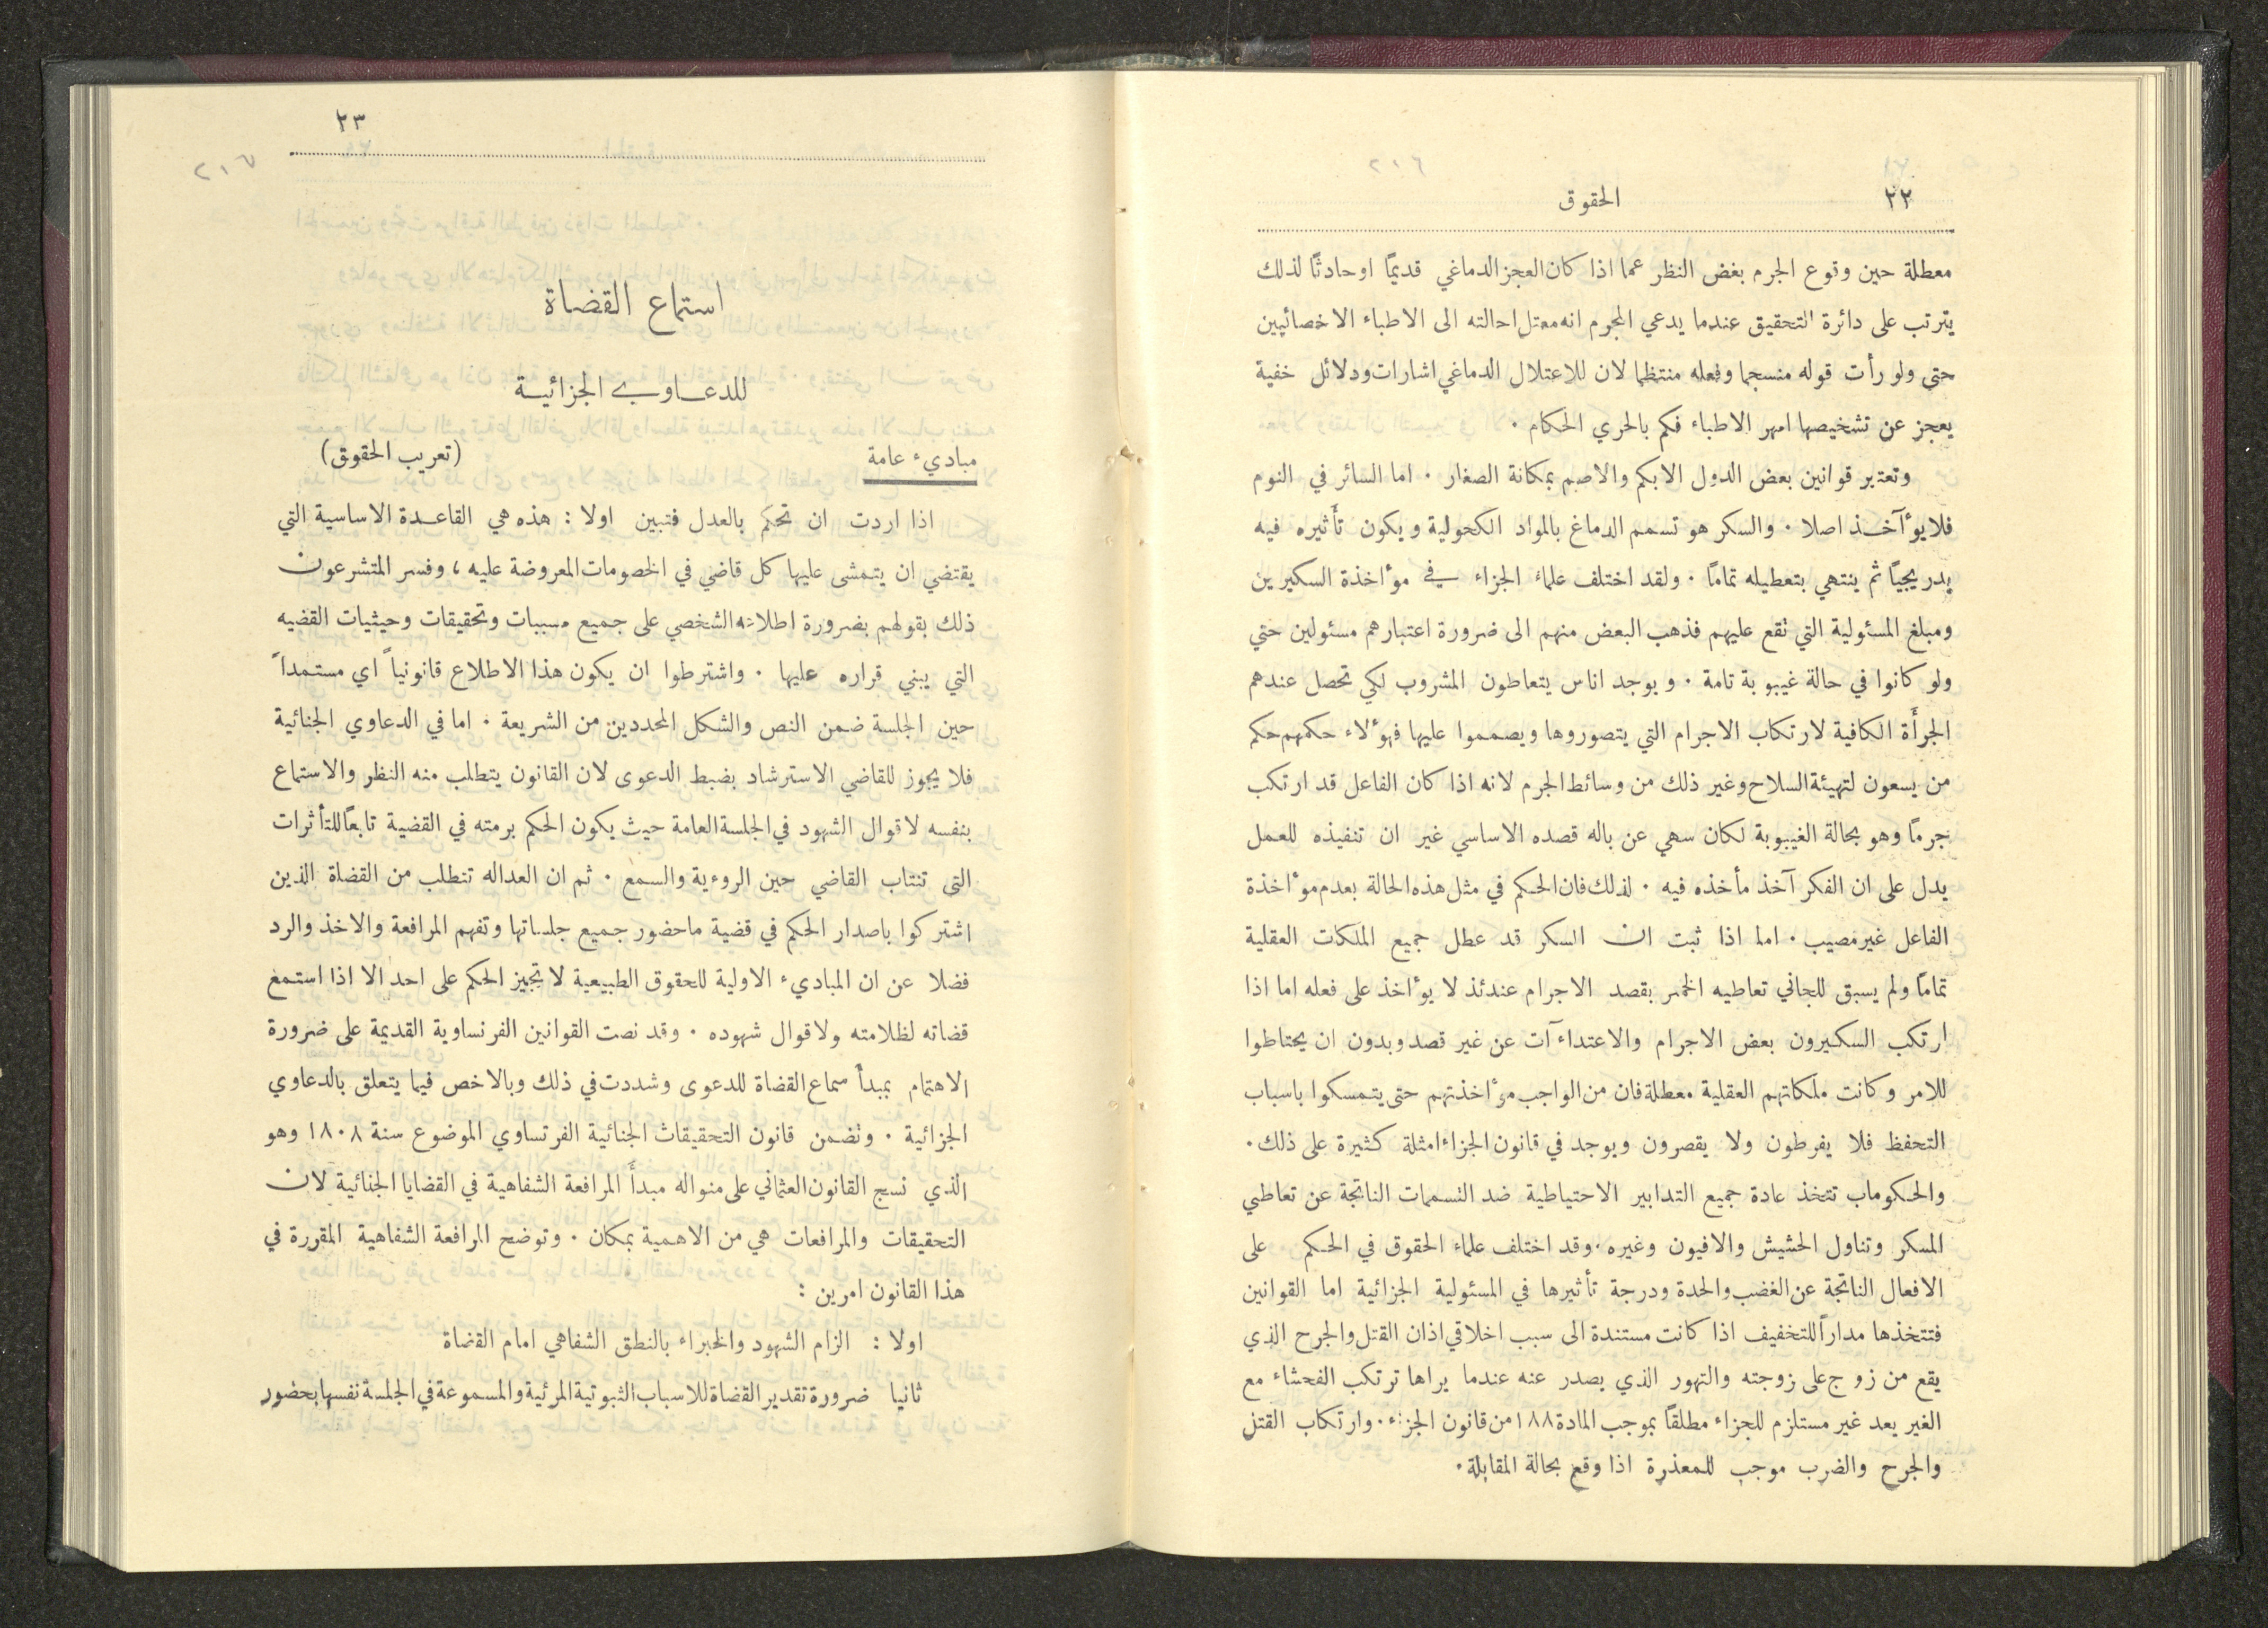 ٢٢
الحقوق
معطلة حين وقوع الجرم بغض النظر عما اذا كان العجز الدماغي قديمًا او حادثًا لذلك
يترتب على دائرة التحقيق عندما يدعي المجرم انه معتل احالته الى الاطباء الاخصائيين
حتى ولو رأت قوله منسجما وفعله منتظما لان للاعتلال الدماغي اشارات ودلائل خفية
يعجز عن تشخيصها امهر الاطباء فكم بالحري الحكام ٠
وتعتبر قوانين بعض الدول الابكم والاصم بمكانة الصغار ٠ اما السائر في النوم
فلا يوٴآخذ اصلا ٠ والسكر هو تسمم الدماغ بالمواد الكحولية ويكون تأثيره فيه
بدريجيًا ثم ينتهي بتعطيله تمامًا ٠ ولقد اختلف علماء الجزاء في موٴاخذة السكيرين
ومبلغ المسئولية التي تقع عليهم فذهب البعض منهم الى ضرورة اعتبارهم مسئولين حتي
ولو كانوا في حالة غيبوبة تامة ٠ ويوجد اناس يتعاطون المشروب لكي تحصل عندهم
الجرأَة الكافية لارتكاب الاجرام التي يتصوروها ويصمموا عليها فهوٴلاء حكمهم حكم
من يسعون لتهيئة السلاح وغير ذلك من وسائط الجرم لانه اذا كان الفاعل قد ارتكب
جرمًا وهو بحالة الغيبوبة لكان سهي عن باله قصده الاساسي غير ان تنفيذه للعمل
يدل على ان الفكر آخذ مأخذه فيه ٠ لذلك فان الحكم في مثل هذه الحالة بعدم موٴاخذة
الفاعل غير مصيب ٠ اما اذا ثبت ان السكر قد عطل جميع الملكات العقلية
تمامًا ولم يسبق للجاني تعاطيه الخمر بقصد الاجرام عندئذ لا يوٴاخذ على فعله اما اذا
ارتكب السكيرون بعض الاجرام والاعتداءآت عن غير قصد وبدون ان يحتاطوا
للامر وكانت ملكاتهم العقلية معطلة فان من الواجب موٴاخذتهم حتى يتمسكوا باسباب
التحفظ فلا يفرطون ولا يقصرون ويوجد في قانون الجزاء امثلة كثيرة على ذلك ٠
والحكوماب تتخذ عادة جميع التدابير الاحتياطية ضد التسممات الناتجة عن تعاطي
المسكر وتناول الحشيش والافيون وغيره ٠ وقد اختلف علماء الحقوق في الحكم على
الافعال الناتجة عن الغضب والحدة ودرجة تأثيرها في المسئولية الجزائية اما القوانين
فتتخذها مداراً للتخفيف اذا كانت مستندة الى سبب اخلاقي اذان القتل والجرح الذي
يقع من زوج على زوجته والتهور الذي يصدر عنه عندما يراها ترتكب الفحشاء مع
الغير يعد غير مستلزم للجزاء مطلقًا بموجب المادة ١٨٨ من قانون الجزاء ٠ وارتكاب القتل
والجرح والضرب موجب للمعذرة اذا وقع بحالة المقابلة ٠
٢٣
استماع القضاة
للدعاوي الجزائية
مباديء عامة (تعريب الحقوق)
اذا اردت ان تحكم بالعدل فتبين اولا : هذه هي القاعدة الاساسية التي
يقتضي ان يتمشى عليها كل قاضي في الخصومات المعروضة عليه ، وفسر المتشرعون
ذلك بقولهم بضرورة اطلاعه الشخصي على جميع مسببات وتحقيقات وحيثيات القضيه
التي يبني قراره عليها ٠ واشترطوا ان يكون هذا الاطلاع قانونياً اي مستمداً
حين الجلسة ضمن النص والشكل المحددين من الشريعة ٠ اما في الدعاوي الجنائية
فلا يجوز للقاضي الاسترشاد بضبط الدعوى لان القانون يتطلب منه النظر والاستماع
بنفسه لاقوال الشهود في الجلسة العامة حيث يكون الحكم برمته في القضية تابعًا للتأثرات
التى تنتاب القاضي حين الروءية والسمع ٠ ثم ان العداله تتطلب من القضاة الذين
اشتركوا باصدار الحكم في قضية ما حضور جميع جلساتها وتفهم المرافعة والاخذ والرد
فضلا عن ان المباديء الاولية للحقوق الطبيعية لا تجيز الحكم على احد الا اذا استمع
قضاته لظلامته ولاقوال شهوده ٠ وقد نصت القوانين الفرنساوية القديمة على ضرورة
الاهتمام بمبدأ سماع القضاة للدعوى وشددت في ذلك وبالاخص فيما يتعلق بالدعاوي
الجزائية ٠ وتضمن قانون التحقيقاث الجنائية الفرتساوي الموضوع سنة ١٨٠٨ وهو
الذي نسج القانون العثماني على منواله مبدأَ المرافعة الشفاهية في القضايا الجنائية لان
التحقيقات والمرافعات هي من الاهمية بمكان ٠ وتوضح المرافعة الشفاهية المقررة في
هذا القانون امرين :
اولا : الزام الشهود والخبراء بالنطق الشفاهي امام القضاة
ثانيا ضرورة تقدير القضاة للاسباب الثبوتية المرئية والمسموعة في الجلسة نفسها بحضور